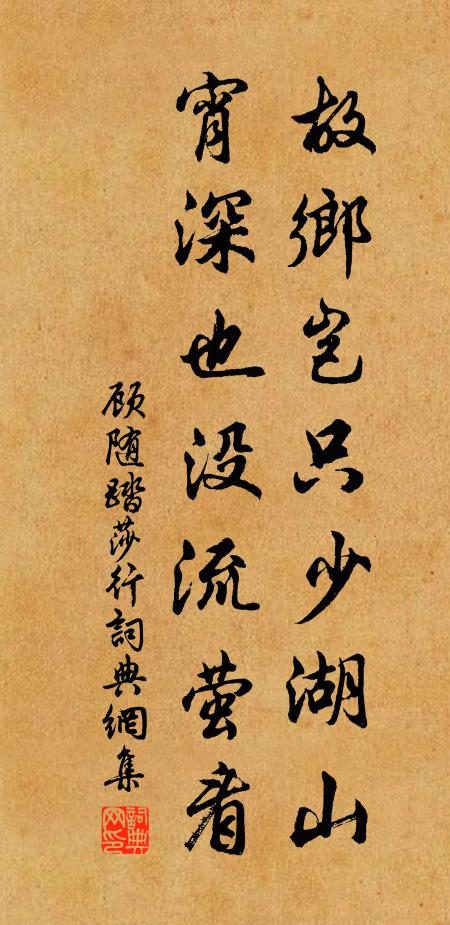 故鄉豈只少湖山
宵深也没流萤看
顾随踏莎行詞典網集
詞典网印